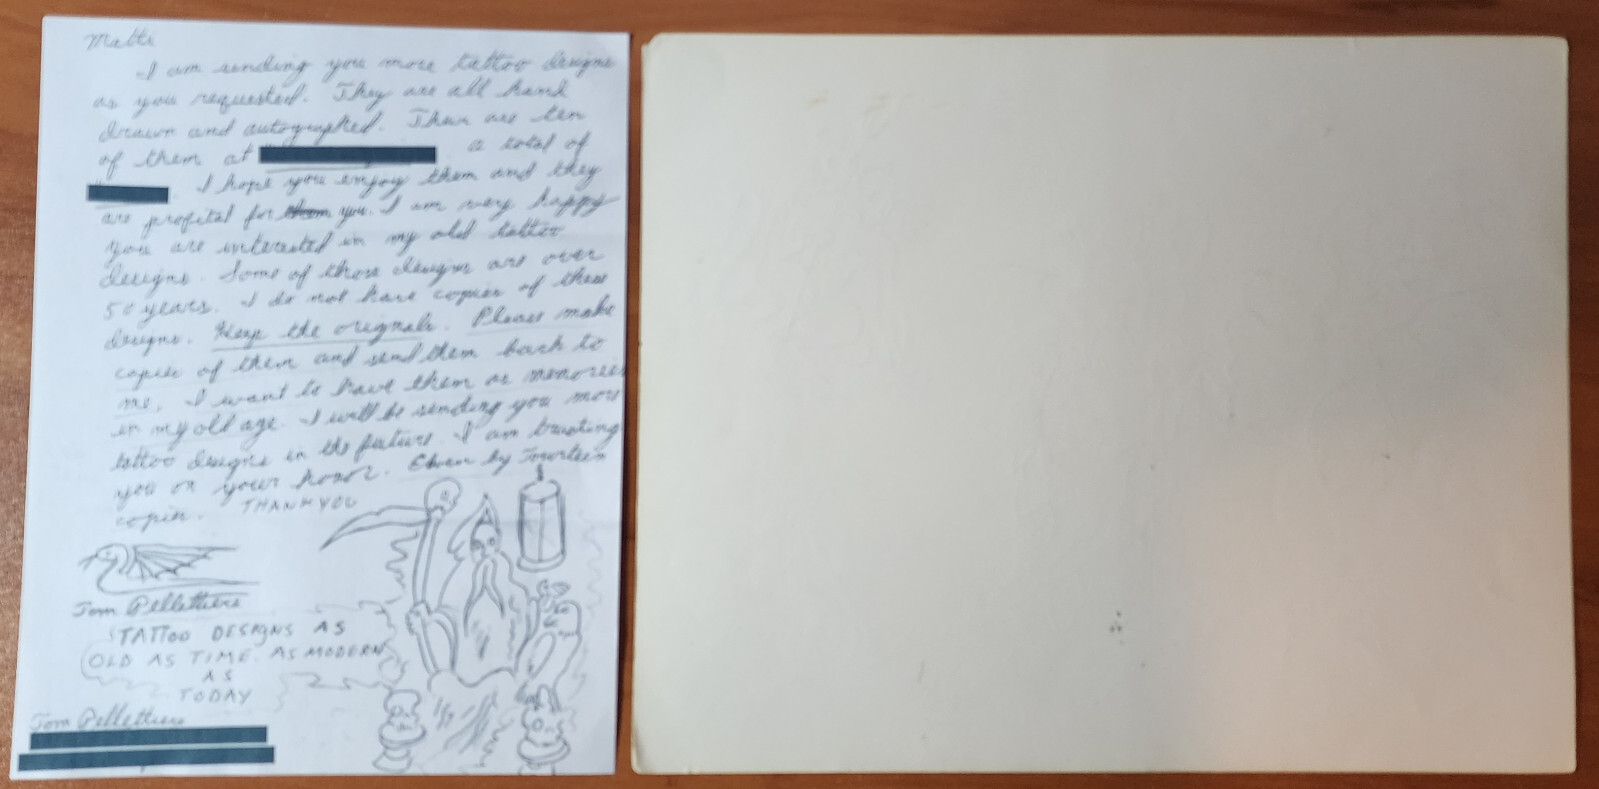 Matti
I am sending you more tattoo designs
as you requested. They are all hand
drawn and autographed. Their are ten
of them at a total of
. I hope you enjoy them and they
are profital for you. I am very happy
you are interested in my old tattoo
designs. Some of those designs are over
50 years. I do not have copies of these
designs. Keep the originals. Please make
copies of them and send them back to
me. I want to have them as memories
in my old age. I will be sending you more
tattoo designs in the future. I am trusting
you on your honor. Eleven by Fourteen
copies. THANK YOU
Tom Pellettiere
"TATTOO DESIGNS AS
OLD AS TIME. AS MODERN
AS
TODAY
Tom Pellettiere